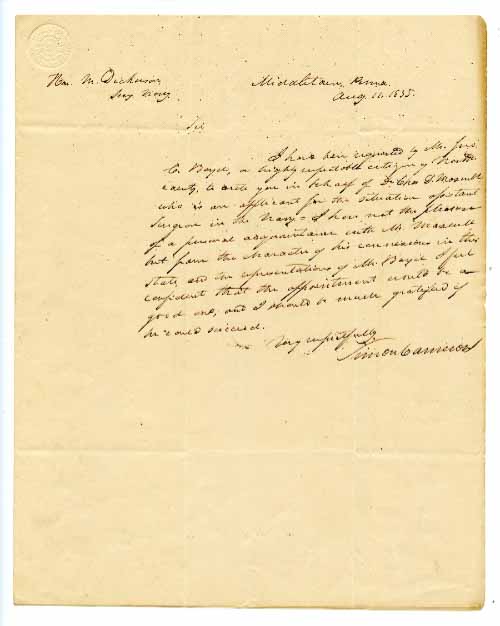 Hon. M. Dickerson
Secy Navy
Middletown, Penna.
Aug. 1835.
Sir
I have been requested by Mr. Jas.
C. Boyd, a highly respectable citizen of
County, to write you in behalf of Dr. Chas. D. Maxwell
who is an applicant for the situation of assistant
Surgeon in the Navy = I have not the pleasure
of a personal acquaintance with Mr. Maxwell
but from the character of his connexions in this
State and the representations of Mr. Boyd I feel
confident that the appointment would be a
good one, and I should be much gratified if
he could succeed.
Very respectfully
Simon Cameron